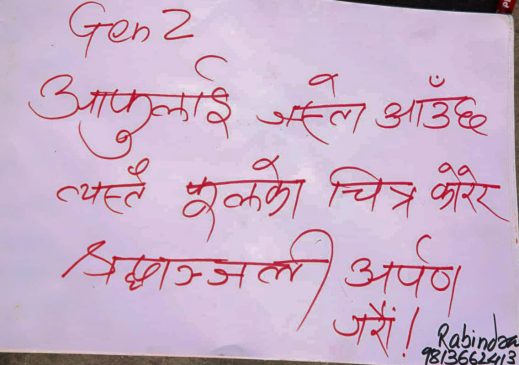 Gen Z
आफुलाई जस्तो आउँछ
त्यस्तै फूलको चित्र कोरेर
श्रद्धाञ्जली अर्पण
गरौं!
Rabindra
9813662413